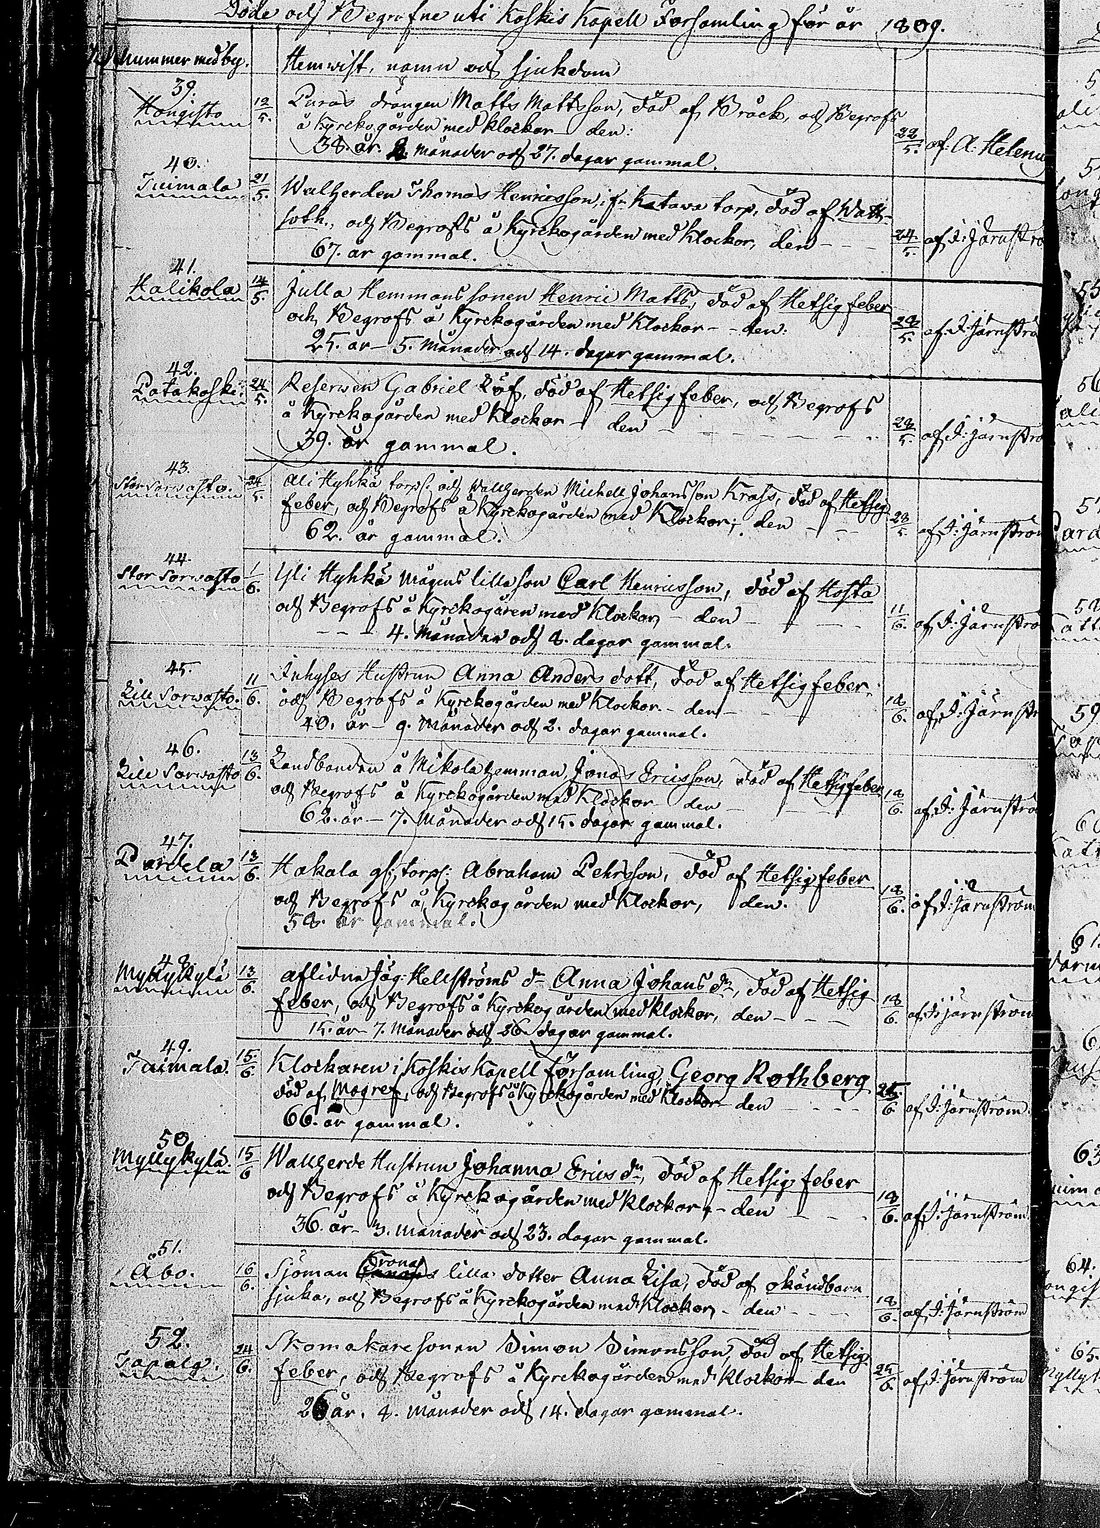 Döde och Begrafne uti Koskis Kapell Församling för år 1809.
Nummer med by. Hemvist, namn och sjukdom
39. Hongisto 12/5. Puras drängen Matts Mattsson, död af Bråck, och Begrofs
å Kyrckogården med klockor den: 22/5. af A: Helenius
38. år. 2. månader och 27. dagar gammal.
40. Tuimala 21/5. Wallherden Thomas Henricsson, ifr. Katava torp, död af Watt-
sotk., och Begrofs å Kyrckogården med Klockor, den - - - 24/5. af J: Järnström
67. år gammal.
41. Halikola 14/5. Julla Hemmans sonen Henric Matts, död af Hetsig feber
och Begrofs å Kyrckogården med Klockor - - den: 28/5. af J: Järnström
25. år - 5. Månader och 14. dagar gammal.
42. Patakoski: 24/5. Reserwen Gabriel Löf, död af Hetsig feber, och Begrofs
å Kyrckogården med Klockor - den - - - 28/5. af J: Järnström
39. år gammal.
43. Stor Sorvasto. 24/5. Ali Hyhkä torp: och Wallherden Michell Johansson Krass, död af Hetsig
feber, och Begrofs å Kyrckogården med Klockor; den - - 28/5. af J: Järnström
62. år gammal.
44. Stor Sorvasto 1/6. Yli Hyhkä mågens lilla son Carl Henricsson, död af Hosta
och Begrofs å Kyrckogåren med Klockor - den - - - 11/6. af J: Järnström
- - - 4. Månader och 8. dagar gammal.
45. Lill Sorvasto. 11/6. Inhyses Hustrun Anna Anders dott, död af Hetsig feber
och Begrofs å Kyrckogården med Klockor - den - - 18/6. af J: Järnström
40. år - 9. Månader och 2. dagar gammal.
46. Lill Sorvasto 13/6. Landbonden å Mikola hemman Jonas Ericsson, död af Hetsig feber
och Begrofs å Kyrckogården med Klockor den - 18/6. af J: Järnström
62. år - 7. Månader och 15. dagar gammal.
47. Pardela 13/6. Hakala gl: torp: Abraham Pehrsson, död af Hetsig feber
och Begrofs å Kyrckogården med Klockor, den. 18/6. af J: Järnström
58. år gammal.
48. Myllykylä 13/6. aflidne Jäg. Hellströms dr Anna Johans dr, död af Hetsig
feber, och Begrofs å Kyrckogården med klockor, den - - - 18/6. af J: Järnström
15. år - 7. Månader och 26. dagar gammal.
49. Tuimala. 15/6. Klockaren i Koskis Kapell församling, Georg Rothberg
död af Magref, och Begrofs å Kyrckogården med Klockor den - - - 25/6 af J: Järnström.
66. år gammal.
50. Myllykylä. 15/6 Wallherde Hustrun Johanna Erics dr, död af Hetsig feber
och Begrofs å Kyrckogården med klockor, - den - - - 18/6. af J: Järnström.
36. år - 3. månader och 23. dagar gammal.
51. Åbo. 16/6. Sjöman Cronas lilla dotter Anna Lisa, död af okänd barn
sjuka, och Begrofs å Kyrckogården med Klockor, - den - - - 18/6. af J: Järnström
52. Tapala. 24/6. Skomakare sonen Simon Simonsson, död af Hetsig
feber, och Begrofs å Kyrckogården med klockor - den 25/6. af J: Järnström
26 år. 8. Månader och 14. dagar gammal.